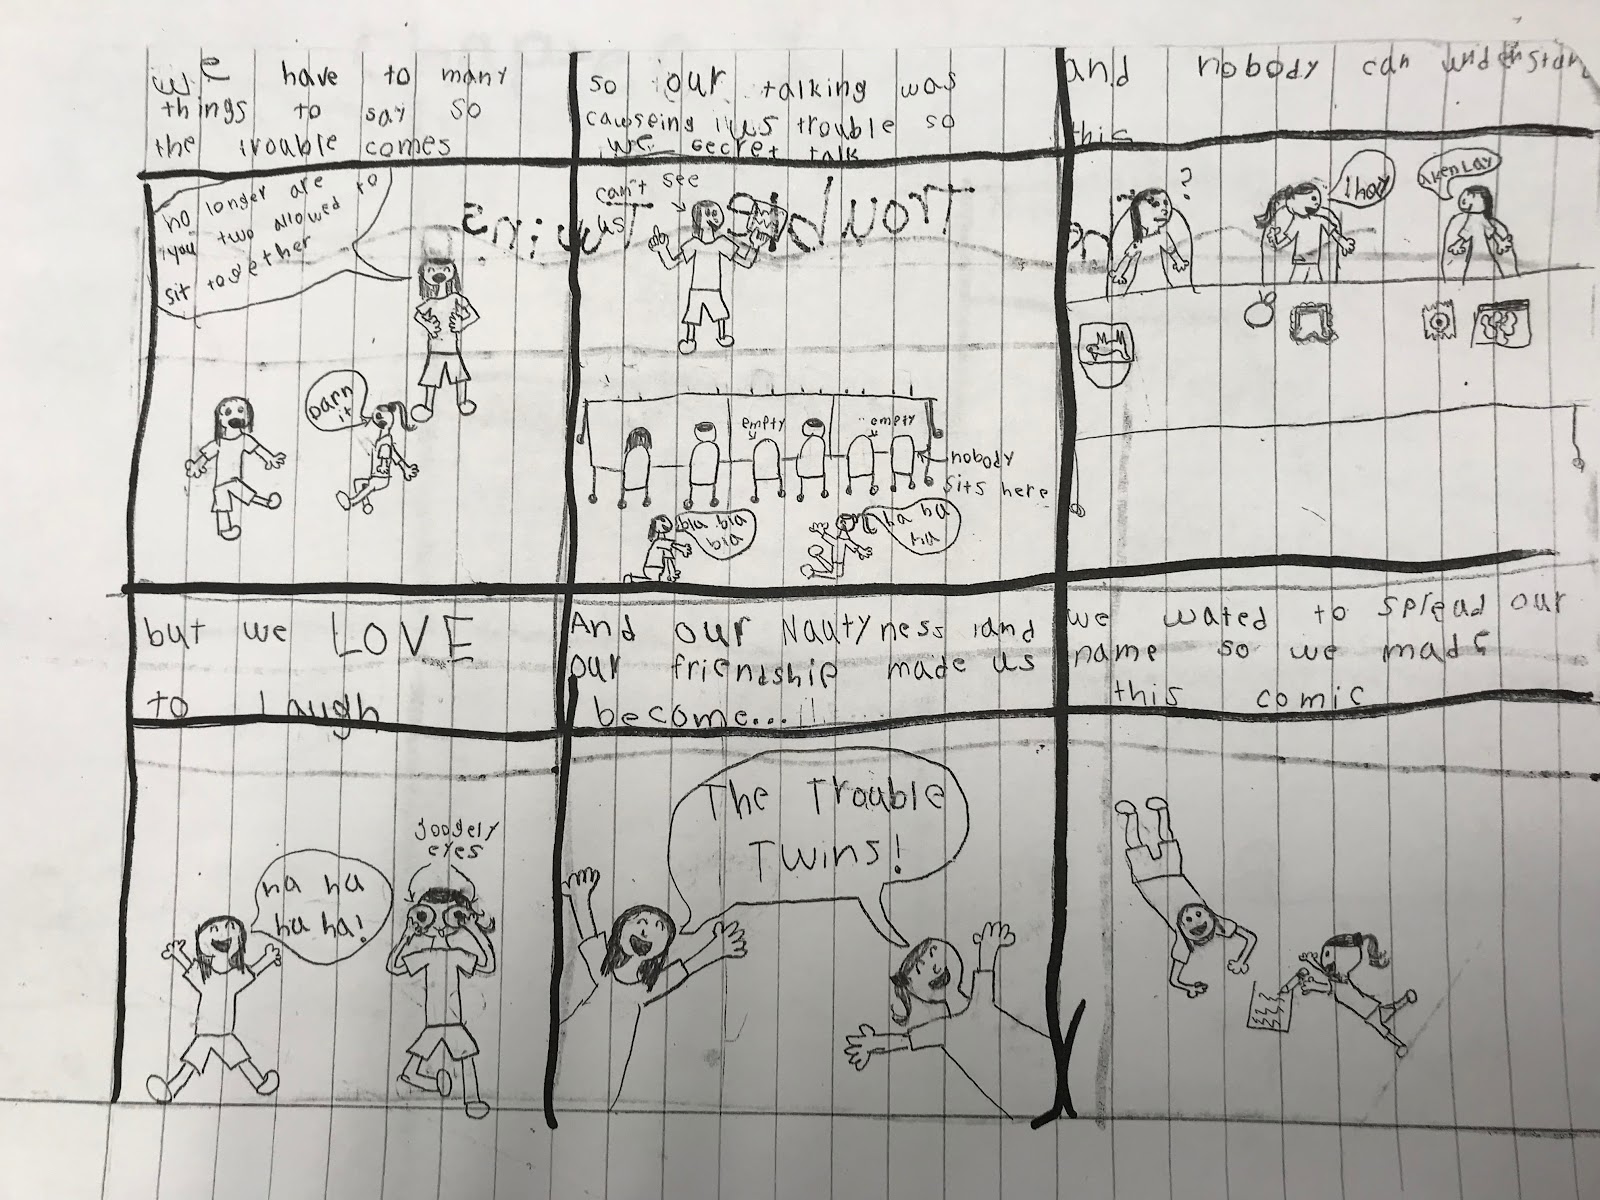 we have to many
things to say so
the trouble comes
no longer are
you two allowed to
sit together
Darn
it
so our talking was
causeing us trouble so
we secret talk
can't see
us
empty
empty
nobody
sits here
bla bla
bla
ha ha
ha
and nobody can understan
this
?
but we LOVE
to laugh
ha ha
ha ha!
googely
eyes
And our Nautyness and
our friendship made us
become...
The Trouble
Twins!
we wated to spread our
name so we made
this comic